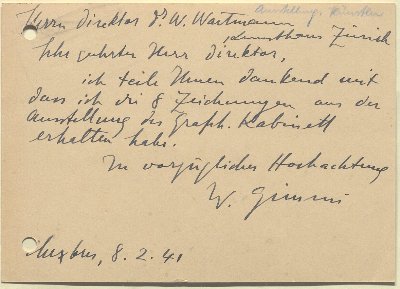 Ausstellung. Künstler
Herrn Direktor Dr W. Wartmann
Kunsthaus Zürich
Sehr geehrter Herr Direktor,
ich teile Ihnen dankend mit
dass ich die 8 Zeichnungen aus der
Ausstellung des Graph. Kabinett
erhalten habe.
In vorzüglicher Hochachtung
W. Gimmi
8.2.41